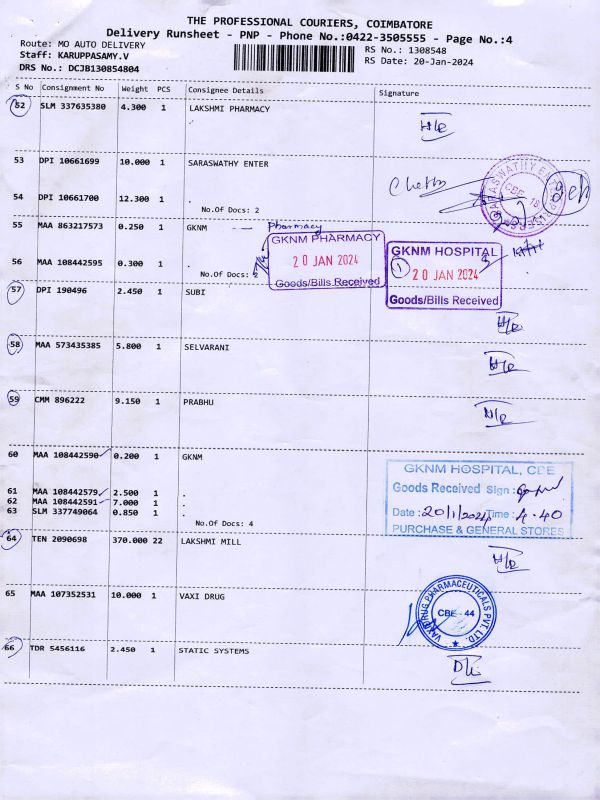 THE PROFESSIONAL COURIERS, COIMBATORE
Delivery Runsheet - PNP - Phone No.:0422-3505555 - Page No.:4
Route: MO AUTO DELIVERY
RS No.: 1308548
Staff: KARUPPASAMY.V
RS Date: 20-Jan-2024
DRS No.: DCJB130854804
S No Consignment No Weight PCS Consignee Details Signature
52 SLM 337635380 4.300 1 LAKSHMI PHARMACY
.
53 DPI 10661699 10.000 1 SARASWATHY ENTER
54 DPI 10661700 12.300 1 .
No.Of Docs: 2
55 MAA 863217573 0.250 1 GKNM -- Pharmacy
GKNM PHARMACY
20 JAN 2024
Goods/Bills Received
GKNM HOSPITAL
1 20 JAN 2024
Goods/Bills Received
56 MAA 108442595 0.300 1 .
No.Of Docs: 2
57 DPI 190496 2.450 1 SUBI
58 MAA 573435385 5.800 1 SELVARANI
59 CMM 896222 9.150 1 PRABHU
60 MAA 108442590 0.200 1 GKNM
GKNM HOSPITAL, CBE
Goods Received Sign :
Date : 20/1/2024 Time : 4.40
PURCHASE & GENERAL STORES
61 MAA 108442579 2.500 1 .
62 MAA 108442591 7.000 1 .
63 SLM 337749064 0.850 1 .
No.Of Docs: 4
64 TEN 2090698 370.000 22 LAKSHMI MILL
65 MAA 107352531 10.000 1 VAXI DRUG
VAXI DRUG PHARMACEUTICALS PVT. LTD.
CBE - 44
66 TDR 5456116 2.450 1 STATIC SYSTEMS